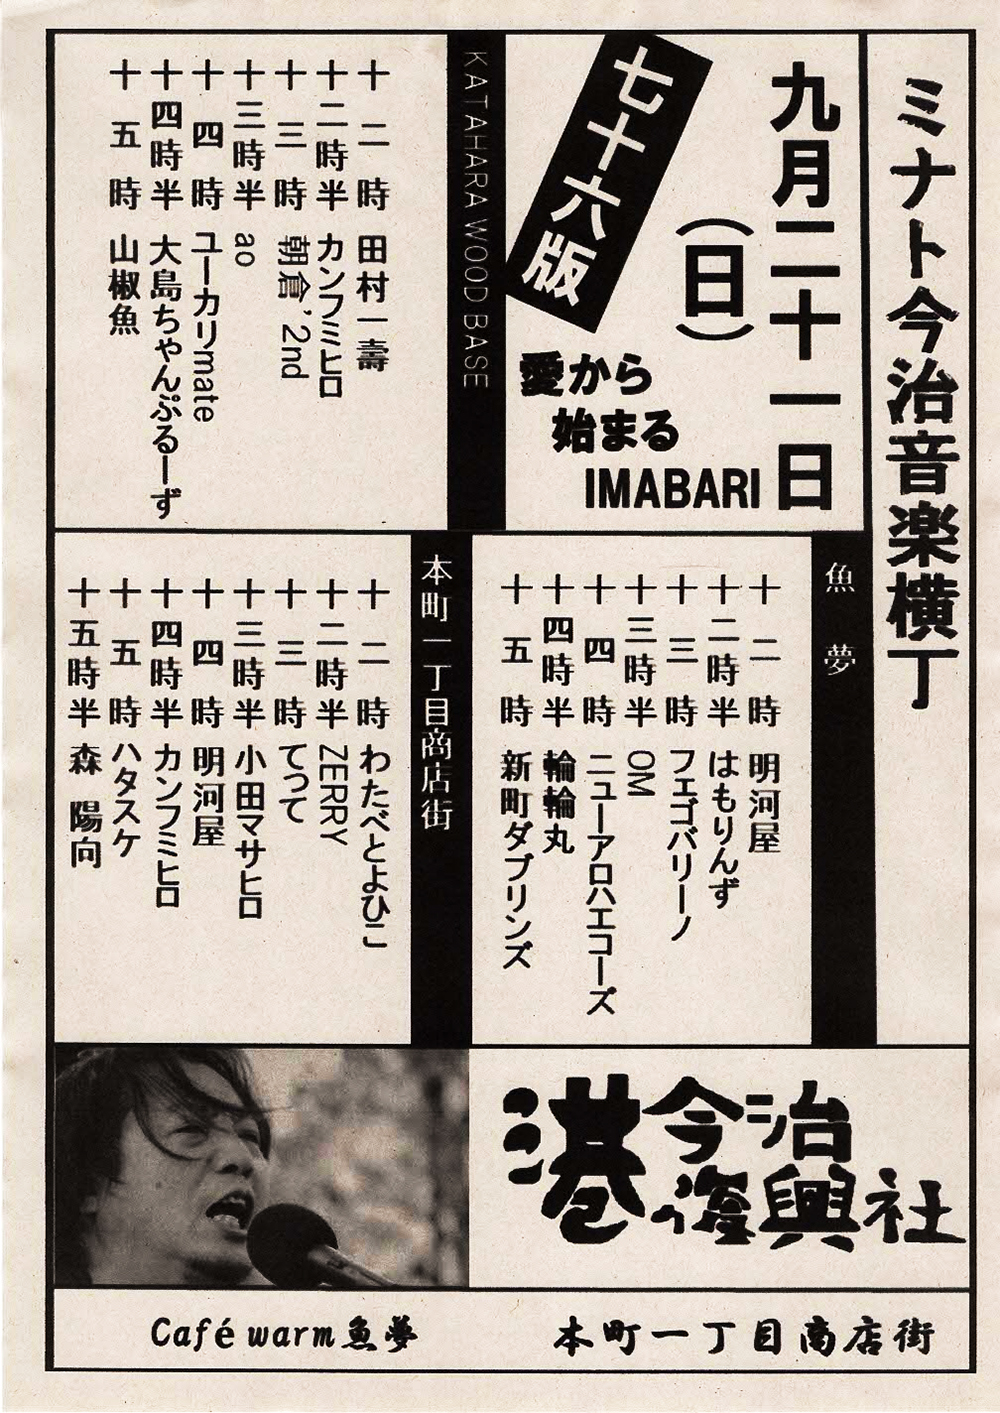 ミナト今治音楽横丁
九月二十一日
（日）
七十六版
愛から
始まる
IMABARI
KATAHARA WOOD BASE
十二時 田村一壽
十二時半 カンフミヒロ
十三時 朝倉’2nd
十三時半 ao
十四時 ユーカリmate
十四時半 大島ちゃんぷるーず
十五時 山椒魚
魚夢
十二時 明河屋
十二時半 はもりんず
十三時 フェゴバリーノ
十三時半 OM
十四時 ニューアロハエコーズ
十四時半 輪輪丸
十五時 新町ダブリンズ
本町一丁目商店街
十二時 わたべとよひこ
十二時半 ZERRY
十三時 てつて
十三時半 小田マサヒロ
十四時 明河屋
十四時半 カンフミヒロ
十五時 ハタスケ
十五時半 森 陽向
港今治
復興社
Café warm 魚夢
本町一丁目商店街